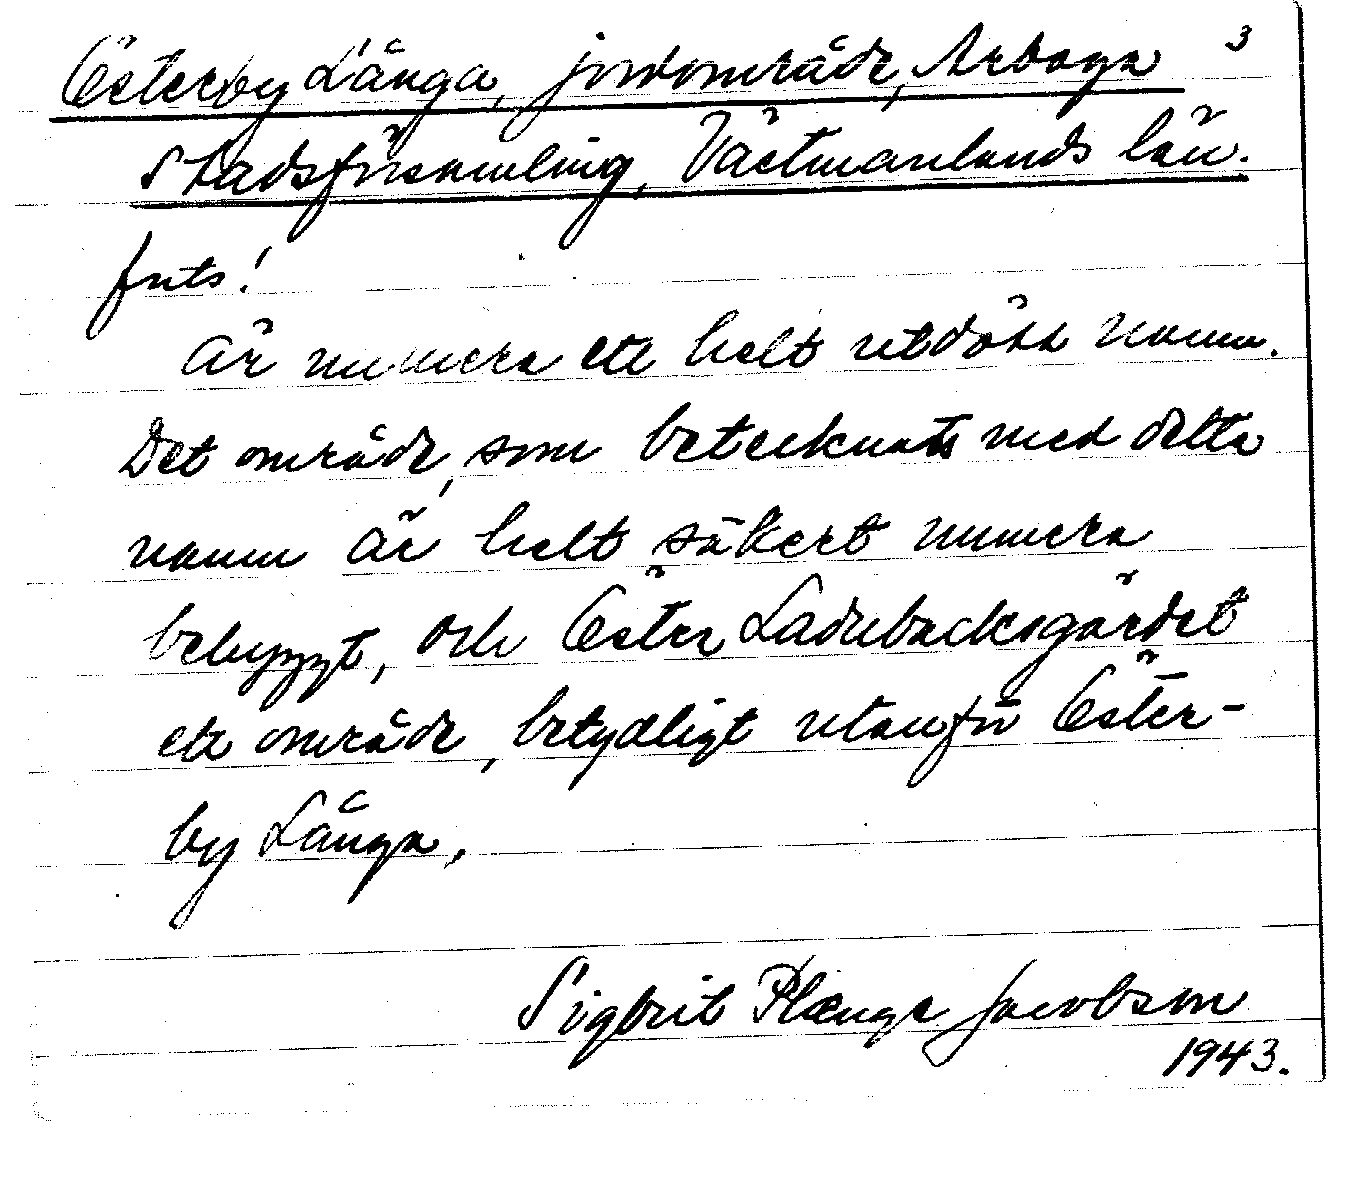 Österby Långa, jordområde, Arboga 3
stadsförsamling, Västmanlands län.
forts!
Är numera ett helt utdött namn.
Det område, som betecknats med detta
namn är helt säkert numera
bebyggt, och Öster Ladubacksgärdet
ett område, betydligt utanför Öster-
by Långa.
Sigbrit Plænge Jacobson
1943.